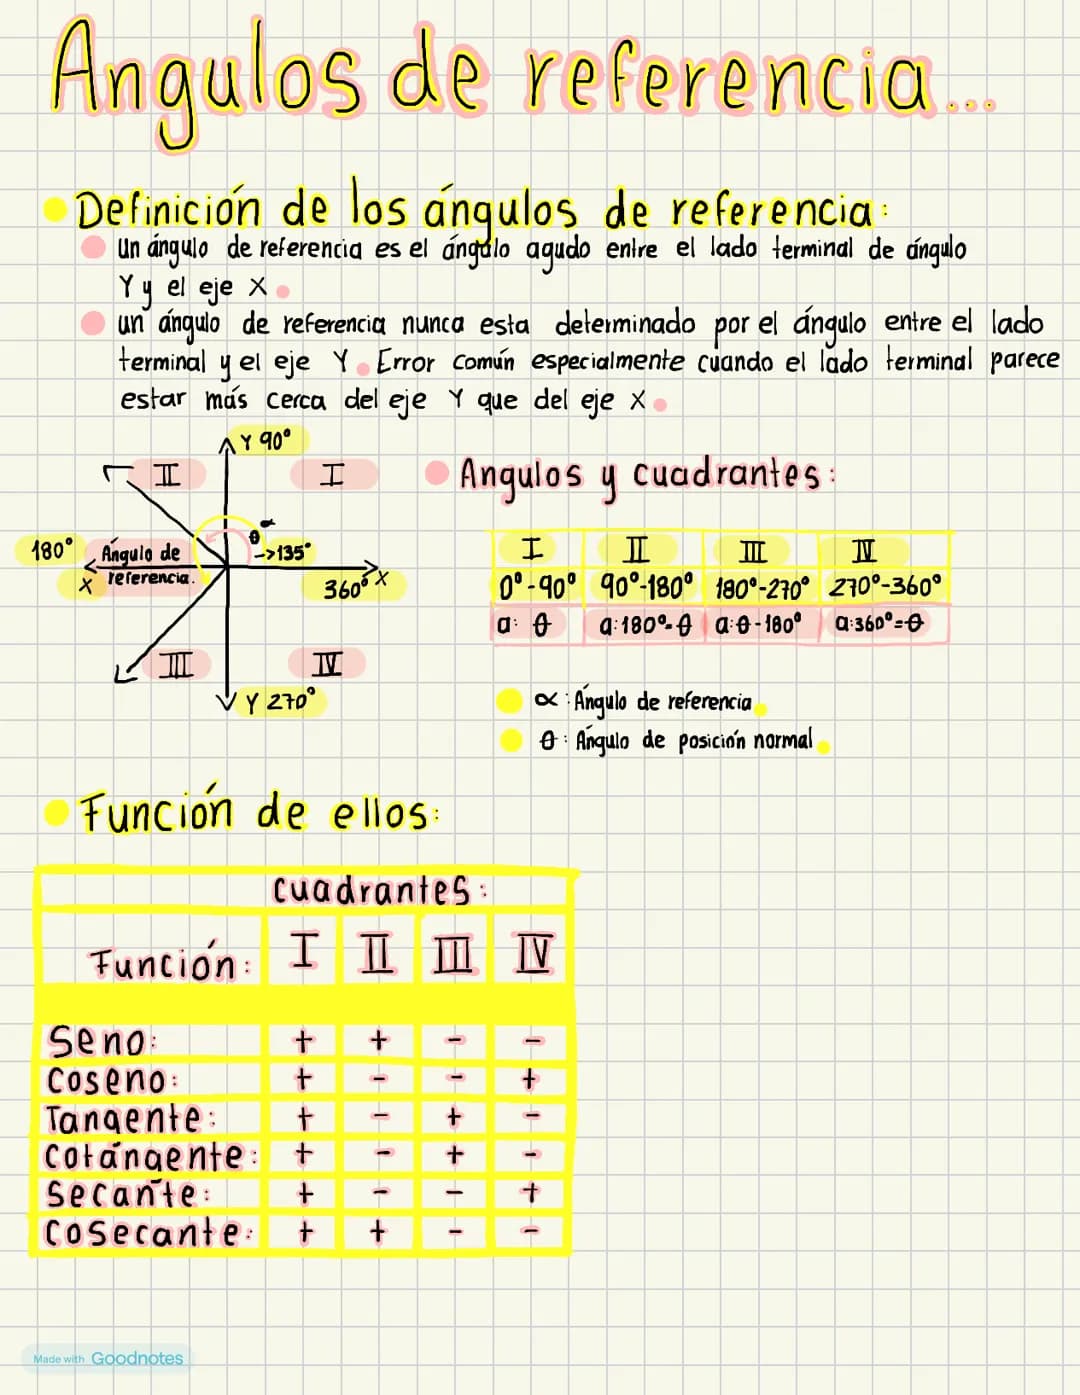 Angulos de referencia...
Definición de los ángulos de referencia:
un ángulo de referencia es el ángulo agudo entre el lado terminal de ángulo
Y y el eje X.
un ángulo de referencia nunca esta determinado por el ángulo entre el lado
terminal y el eje Y. Error común especialmente cuando el lado terminal parece
estar más cerca del eje Y que del eje X.
Y 90°
II
I
180°
Ángulo de
referencia.
X
α
θ
->135°
360°
X
III
IV
Y 270°
Angulos y cuadrantes:
I II III IV
0°-90° 90°-180° 180°-270° 270°-360°
a: θ a:180°-θ a:θ-180° a:360°=θ
α: Ángulo de referencia.
θ: Ángulo de posición normal.
Función de ellos:
cuadrantes:
Función: I II III IV
Seno: + + - -
Coseno: + - - +
Tangente: + - + -
Cotángente: + - + -
Secante: + - - +
Cosecante: + + - -
Made with Goodnotes